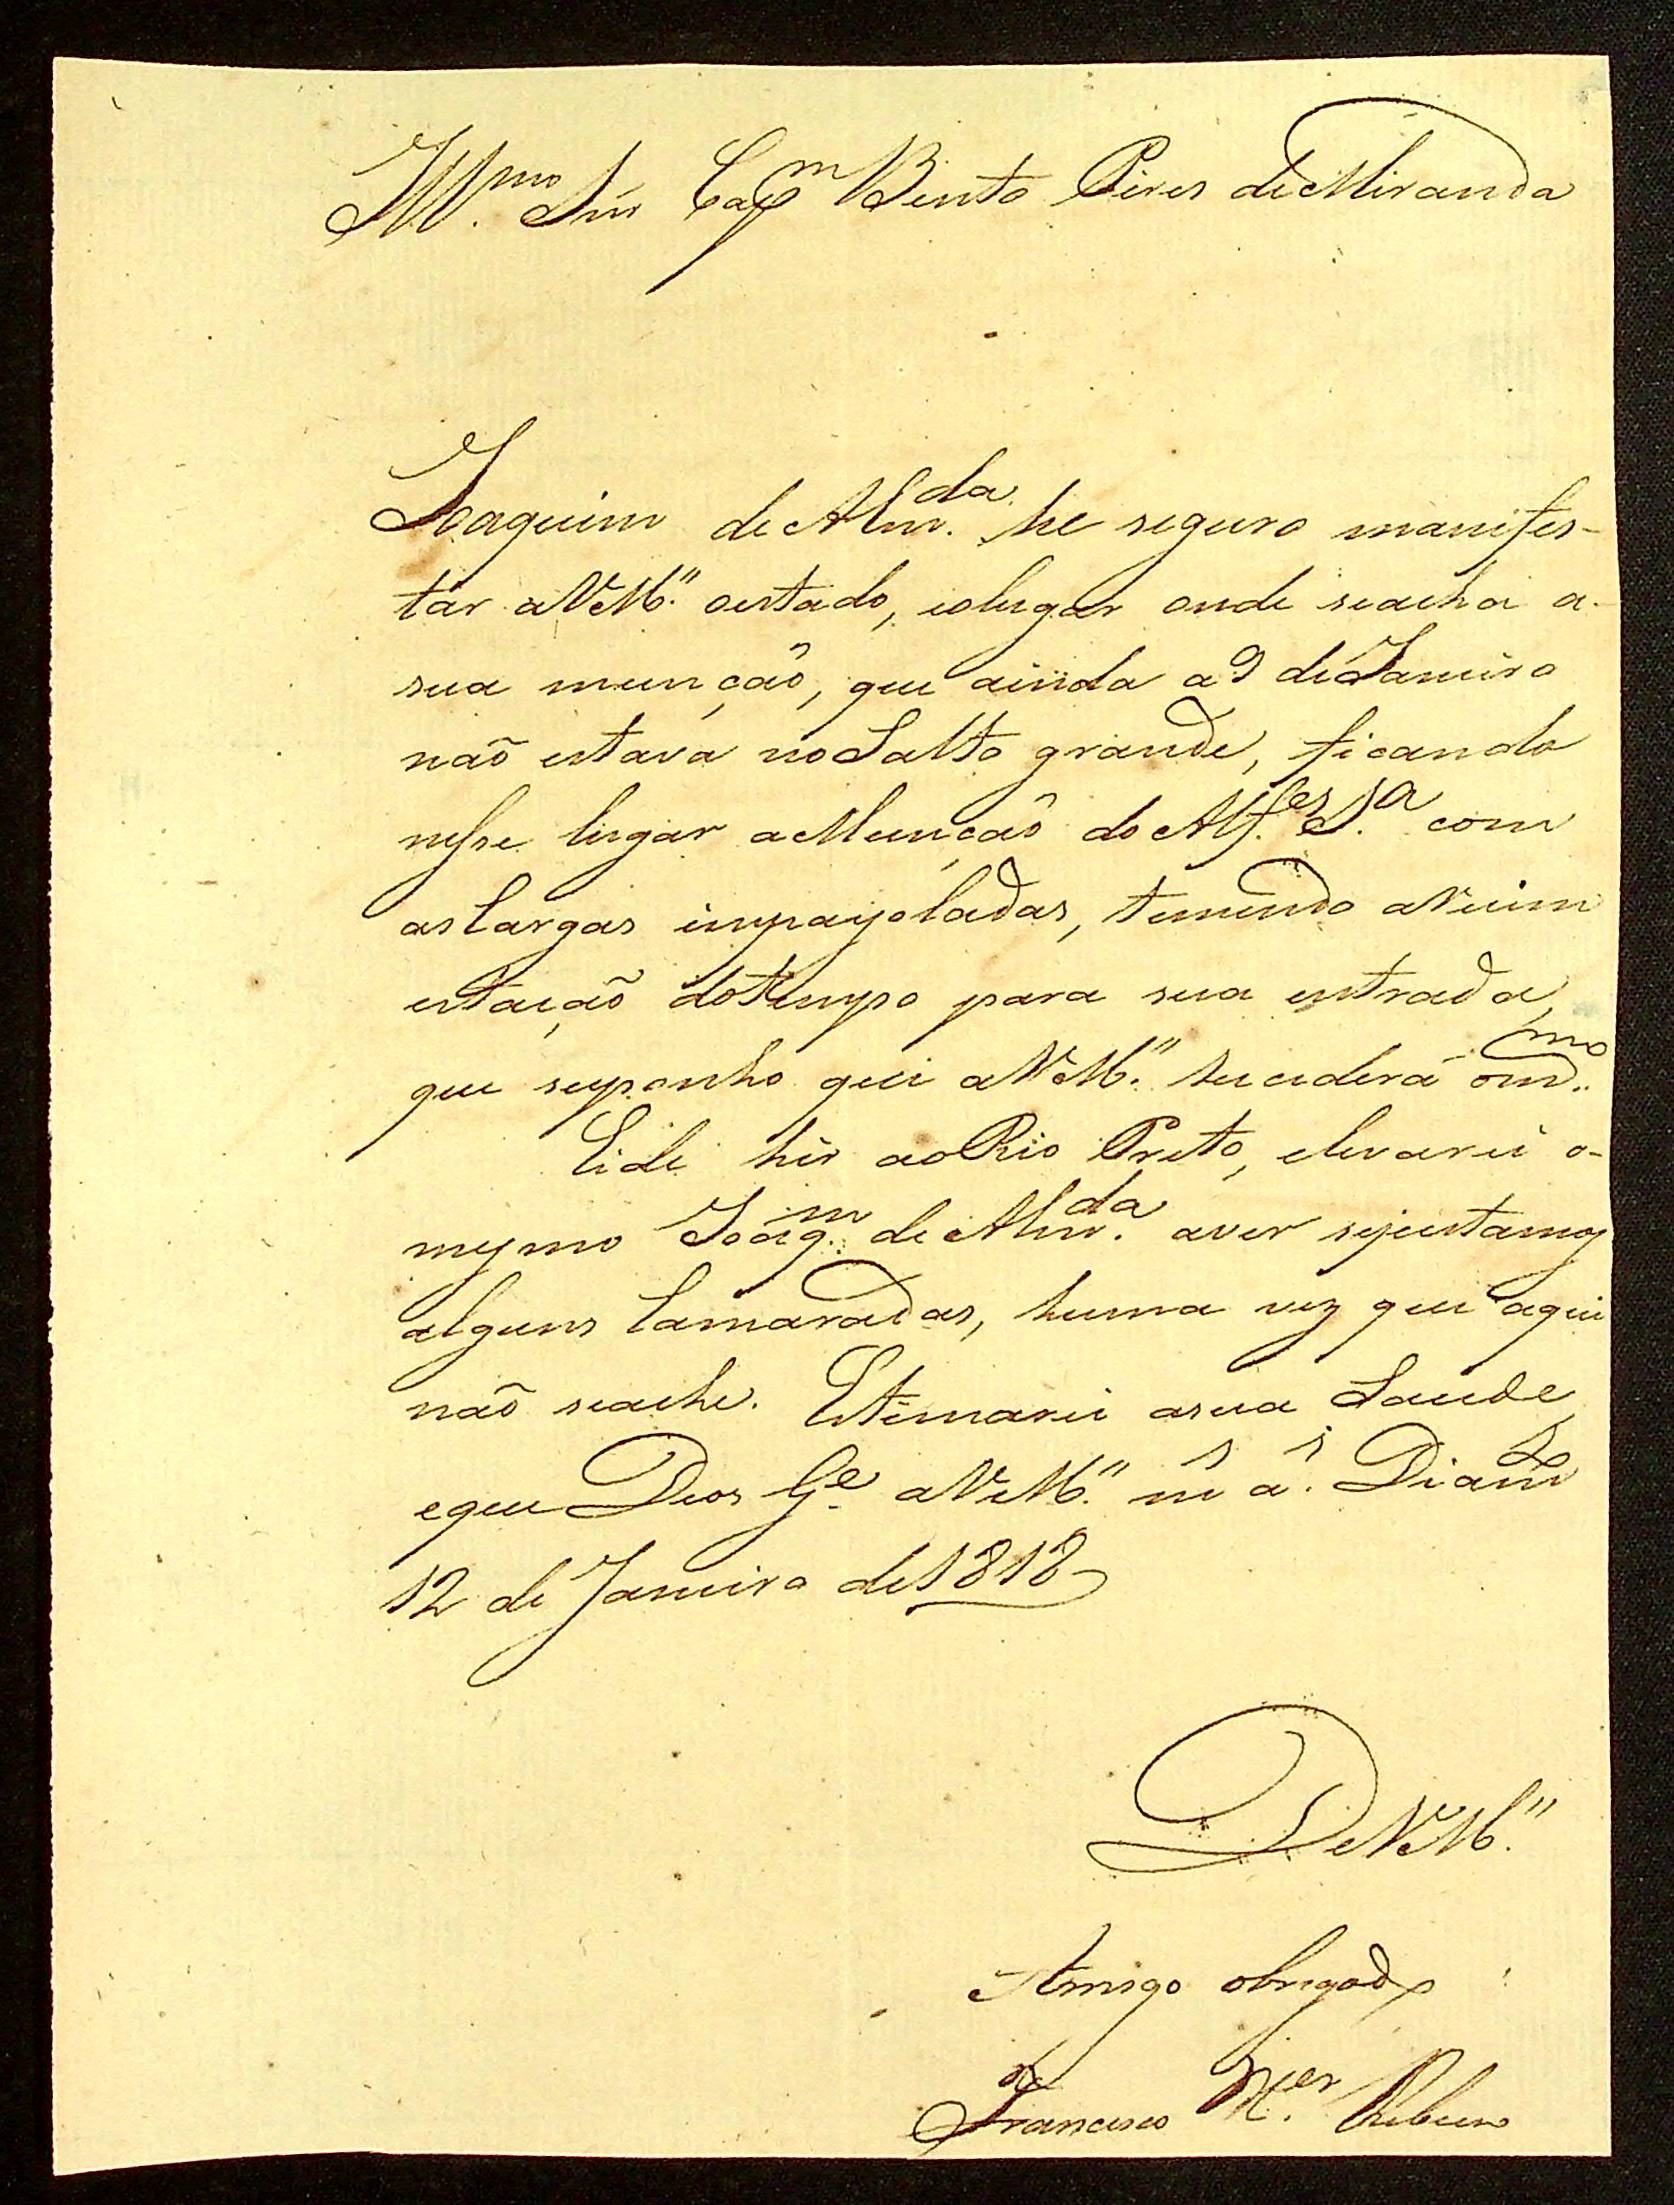 Illmo. Snr Capm Bento Pires de Miranda
Joaquim de Almda. he seguro manifes-
tar a VM.ce o estado, e o lugar onde se acha a
sua munção, que ainda a 9 de Janeiro
não estava no Salto grande, ficando
nesse lugar a Munção do Alfes. Sa. com
as Cargas inpayoladas, temendo a Ruim
estação do Tempo para sua entrada,
que suponho que a VM.ce suceder á o mmo.
Eide hir ao Rio Preto, e levarei o
mesmo Joaqm. de Almda. a ver se justamos
alguns Camaradas, huma vez que aqui
não se ache. Estimarei a sua Saude,
e que Deos Ge. a VM.ce ms. as. Diamno
12 de Janeiro de 1818
De VM.ce
Amigo obrigado
Francisco Xer. Ribeiro